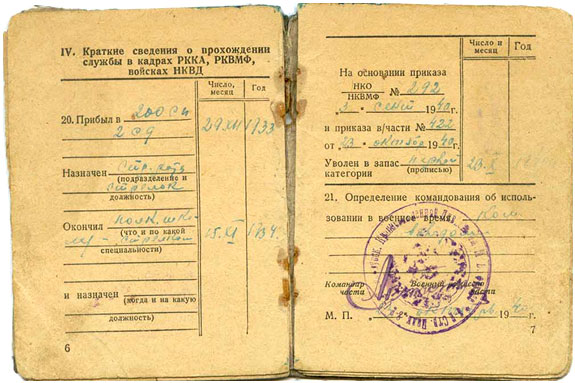 IV. Краткие сведения о прохождении
службы в кадрах РККА, РКВМФ,
войсках НКВД
Число,
месяц
Год
20. Прибыл в 200 сп
2 сд
29 XII 1933
Назначен стр.
(подразделение и
стрелок
должность)
Окончил полк. шко-
(что и по какой
лу -
специальности)
15. XI 1934
и назначен (когда и на какую
должность)
6
Число и
месяц
Год
На основании приказа
НКО
НКВМФ
№ 292
3. сент 1940 г.
и приказа в/части № 422
от 23 октября 1940 г.
Уволен в запас первой
категории (прописью)
20. X
21. Определение командования об исполь-
зовании в военное время: Ком
Командир
части
Военный
части
М. П.
194 г.
7